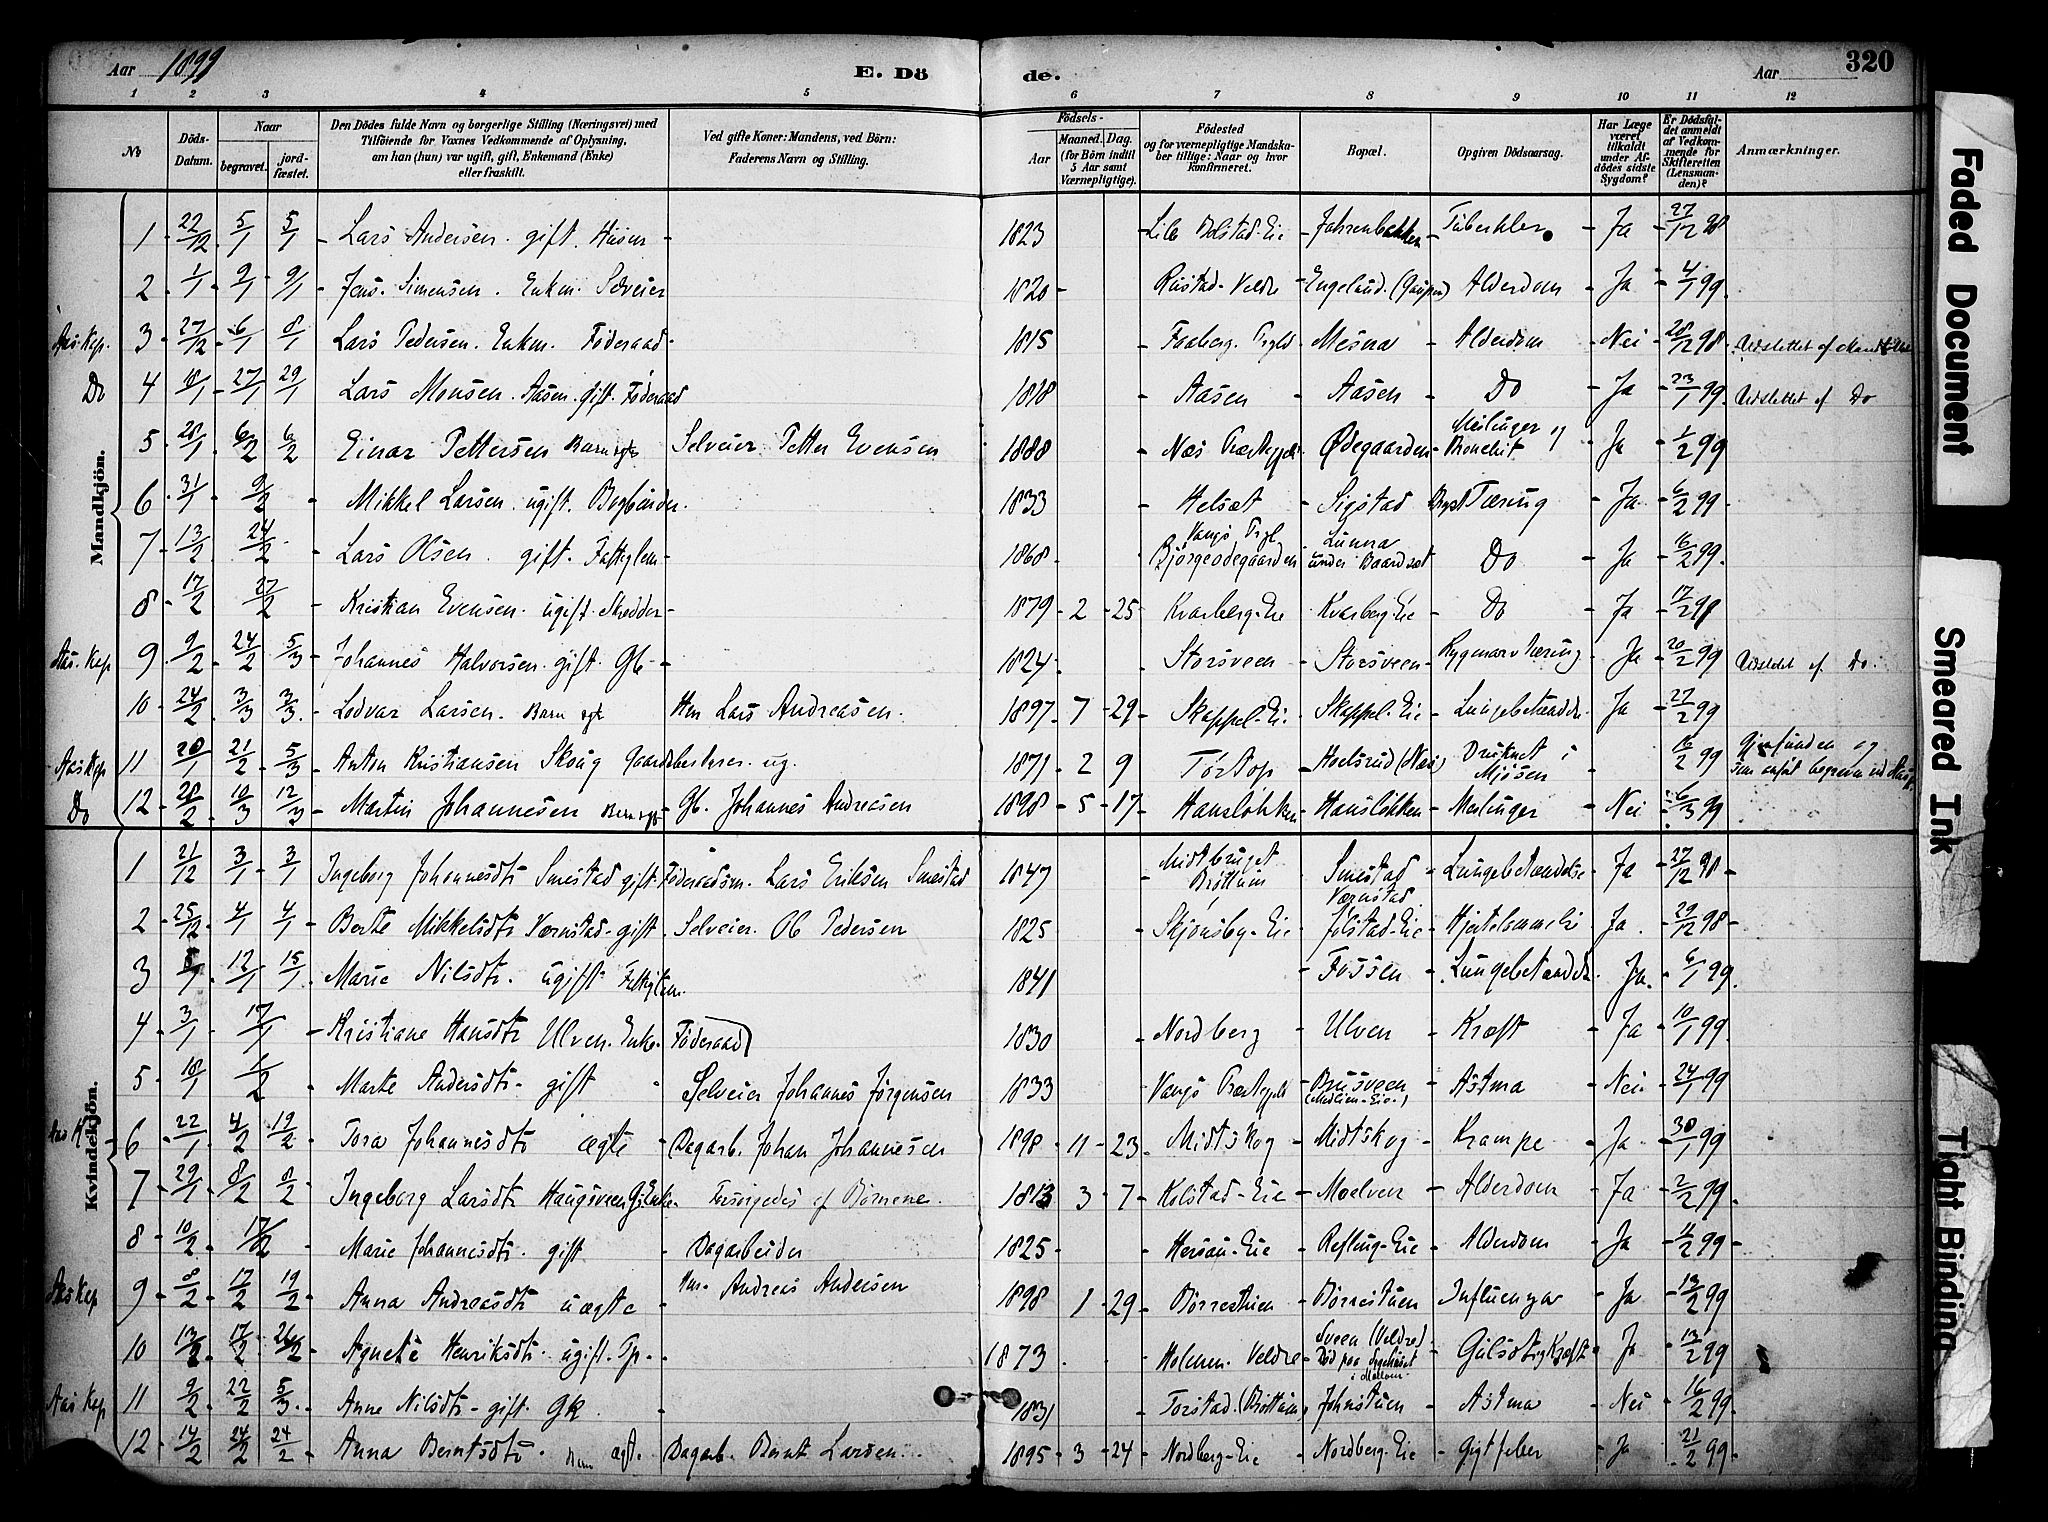 Aar 1899 E. Döde. Aar 320
1 2 3 4 5 6 7 8 9 10 11 12
№ Döds-Datum. Naar begravet. jordfæstet. Den Dödes fulde Navn og borgerlige Stilling (Næringsvei) med Tilföiende for Voxnes Vedkommende af Oplysning, am han (hun) var ugift, gift, Enkemand (Enke) eller fraskilt. Ved gifte Koner: Mandens, ved Börn: Faderens Navn og Stilling. Födsels- Aar Maaned. Dag. (for Börn indtil 5 Aar samt Værnepligtige). Födested og for værnepligtige Mandskaber tillige: Naar og hvor konfirmeret. Bopæl. Opgiven Dödsaarsag. Har Læge været tilkaldt under Afdödes sidste Sygdom? Er Dödsfaldet anmeldt af Vedkommende for Skifteretten (Lensmanden)? Anmærkninger.
Mandkjön.
1 22/12 5/1 5/1 Lars Andersen. gift. Husm 1823 Lile Bolstad-Eie Tuberkler Ja 27/12 98
2 1/1 9/1 9/1 Jens Simensen. Enkm. Selveier 1820 Rustad-Veldre Engelund. (Gaupen) Alderdom Ja 4/1 99
Aas-Kap. 3 27/12 6/1 8/1 Lars Pedersen. Enkm. Föderaad 1815 Faaberg. Prgld Mesna Alderdom Nei 28/12 98 Udslettet af
Do 4 18/1 27/1 29/1 Lars Monsen. Aasen. gift. Föderaad 1818 Aasen Aasen Do Ja 23/1 99 Udslettet af Do
5 28/1 6/2 6/2 Einar Pettersen Barn ægte Selveier Petter Evensen 1888 Næs Præstegjæld Ödegaarden Meslinger og Bronchit Ja 1/2 99
6 31/1 9/2 Mikkel Larsen. ugift. Bogbinder 1833 Helsæt Sigstad Bryst Tæring Ja 6/2 99
7 13/2 24/2 Lars Olsen. gift. Fattiglem 1868 Vangs Prgl. Bjørgeødegaarden Lunna under Baardset Do Ja 16/2 99
8 17/2 27/2 Kristian Evensen. ugift. Skrædder 1879 2 25 Kvarberg-Eie Kvarberg-Eie Do Ja 17/2 99
Aas. Kap 9 9/2 24/2 5/3 Johannes Halvorsen. gift. Gb. 1824 Storsveen Storsveen Rygmarvstæring Ja 20/2 99 Udslettet af Do.
10 24/2 3/3 3/3 Lodvar Larsen. Barn ægte Hm Lars Andreasen. 1897 7 29 Skappel-Eie Skappel-Eie Lungebetændelse Ja 27/2 99
Aas Kap 11 20/1 21/2 5/3 Anton Kristiansen Skoug Gaardbestyrer. ug. 1871 2 9 Tørtop Hoelsrud (Næs) Druknet i Mjøsen 16/2 99 Gjenfunden og
Do 12 28/2 10/3 12/3 Martin Johannesen Barn ægte Gb. Johannes Andreasen 1898 5 17 Hansløkken Hansløkken Meslinger Nei 6/3 99
Kvindekjön.
1 21/12 3/1 3/1 Ingeborg Johannesdtr Smestad gift Föderaadsm. Lars Eriksen Smestad 1847 Midtbruget Brøttum Smestad Lungebetændelse Ja 27/12 98
2 25/12 4/1 4/1 Berte Mikkelsdtr Værnstad- gift Selveier. Ole Pedersen 1825 Skjønsby-Eie Værnstad Jølstad-Eie Hjertelammelse Ja. 29/12 98
3 12/1 15/1 Marie Nilsdtr. ugift. Fattiglem. 1841 Fossen Lungebetændelse Ja. 6/1 99
4 3/1 17/1 Kristiane Hansdtr Ulven. Enke. Föderaad 1830 Nordberg Ulven Kræft Ja 10/1 99
5 18/1 1/2 Marte Andersdtr. gift Selveier Johannes Jørgensen 1833 Vangs Præstegjæld Brusveen Astma Nei 24/1 99
Aas K 6 22/1 4/2 19/2 Tora Johannesdtr ægte Dagarb. Johan Johannesen 1898 11 23 Midtskog Midtskog Krampe Ja 30/1 99
7 29/1 8/2 8/2 Ingeborg Larsdtr Haugsveen Enke Forsørgedes af Børnene. 1813 3 7 Kolstad-Eie Moelven Alderdom Ja 2/2 99
8 10/2 17/2 Marie Johannesdtr. gift Dagarbeider 1825 Hersau-Eie Refling-Eie Alderdom Ja 11/2 99
Aas Kap 9 8/2 17/2 19/2 Anna Andreasdtr uægte Hm. Andreas Andersen 1898 1 29 Børrestuen Børrestuen Influenza Ja 13/2 99
10 13/2 17/2 26/2 Agnete Henriksdtr. ugift. Tp. 1873 Holmen. Veldre Sveen (Veldre) Død paa Sygehuset Gulsot og Kræft Ja 13/2 99
Aas Kap 11 9/2 22/2 5/3 Anne Nilsdtr- gift. Gk. 1831 Torstad. (Brøttum) Johnstuen Astma Nei 16/2 99
12 14/2 24/2 24/2 Anna Berntsdtr. Barn ægte. Dagarb. Bernt Larsen. 1895 3 24 Nordberg-Eie Nordberg-Eie Gigtfeber Ja 21/2 99
Faded Document
Smeared Ink
Tight Binding